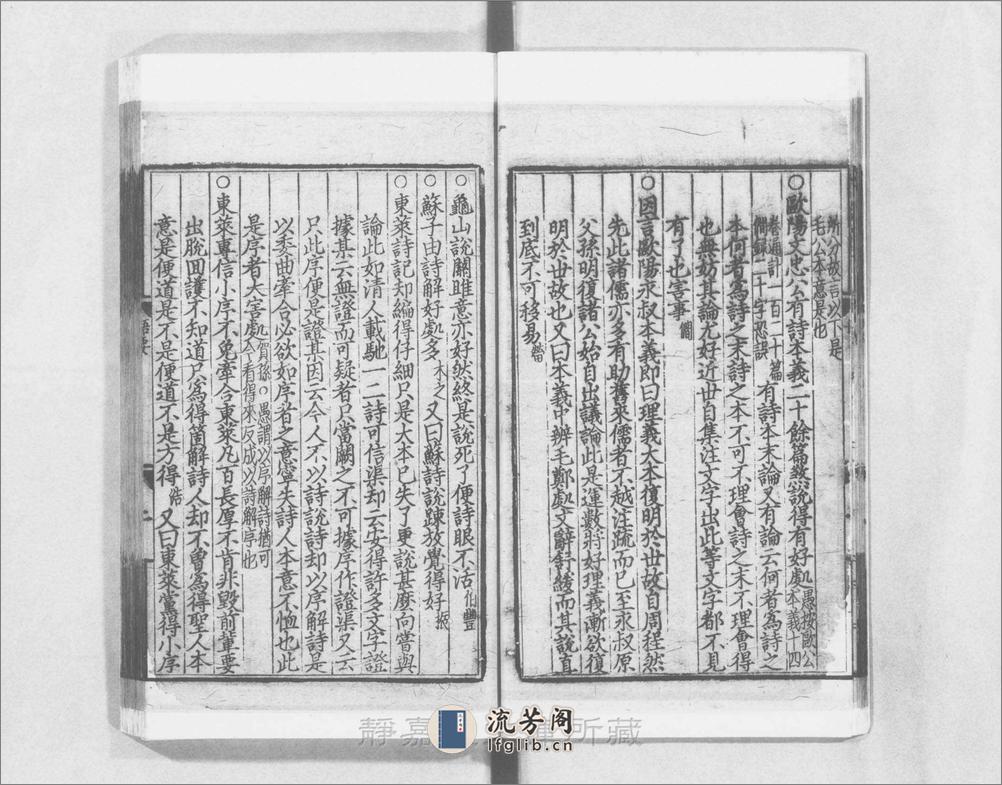 所分故言以下是
毛公本意是也
○歐陽文忠公有詩本義二十餘篇煞說得有好處愚按歐公本義十四
卷通計一百二十篇
僩録二十字恐誤有詩本末論又有論云何者爲詩之
本何者爲詩之末詩之本不可不理會詩之末不理會得
也無妨其論尤好近世自集注文字出此等文字都不見
有了也害事僩
○因言歐陽永叔本義即曰理義大本復明於世故自周程然
先此諸儒亦多有助舊來儒者不越注疏而已至永叔原
父孫明復諸公始自出議論此是運數將好理義漸欲復
明於世故也又曰本義中辨毛鄭處文辭舒緩而其說直
到底不可移易㽦
○龜山說關雎意亦好然終是說死了便詩眼不活伯豐
○蘇子由詩解好處多木之又曰蘇詩說踈放覺得好振
○東萊詩記却編得仔細只是大本已失了更說甚麼向嘗與
論此如清人載馳一二詩可信渠却云安得許多文字證
據某云無證而可疑者只當闕之不可據序作證渠又云
只此序便是證某因云今人不以詩說詩却以序解詩是
以委曲牽合必欲如序者之意寧失詩人本意不恤也此
是序者大害處賀孫○愚謂以序解詩猶可
今看得來反成以詩解序也
○東萊專信小序不免牽合東萊凡百長厚不肯非毀前輩要
出脫回護不知道只爲得箇解詩人却不曾爲得聖人本
意是便道是不是便道不是方得浩又曰東萊黨得小序
靜嘉
所藏
流芳阁
lfglib.cn